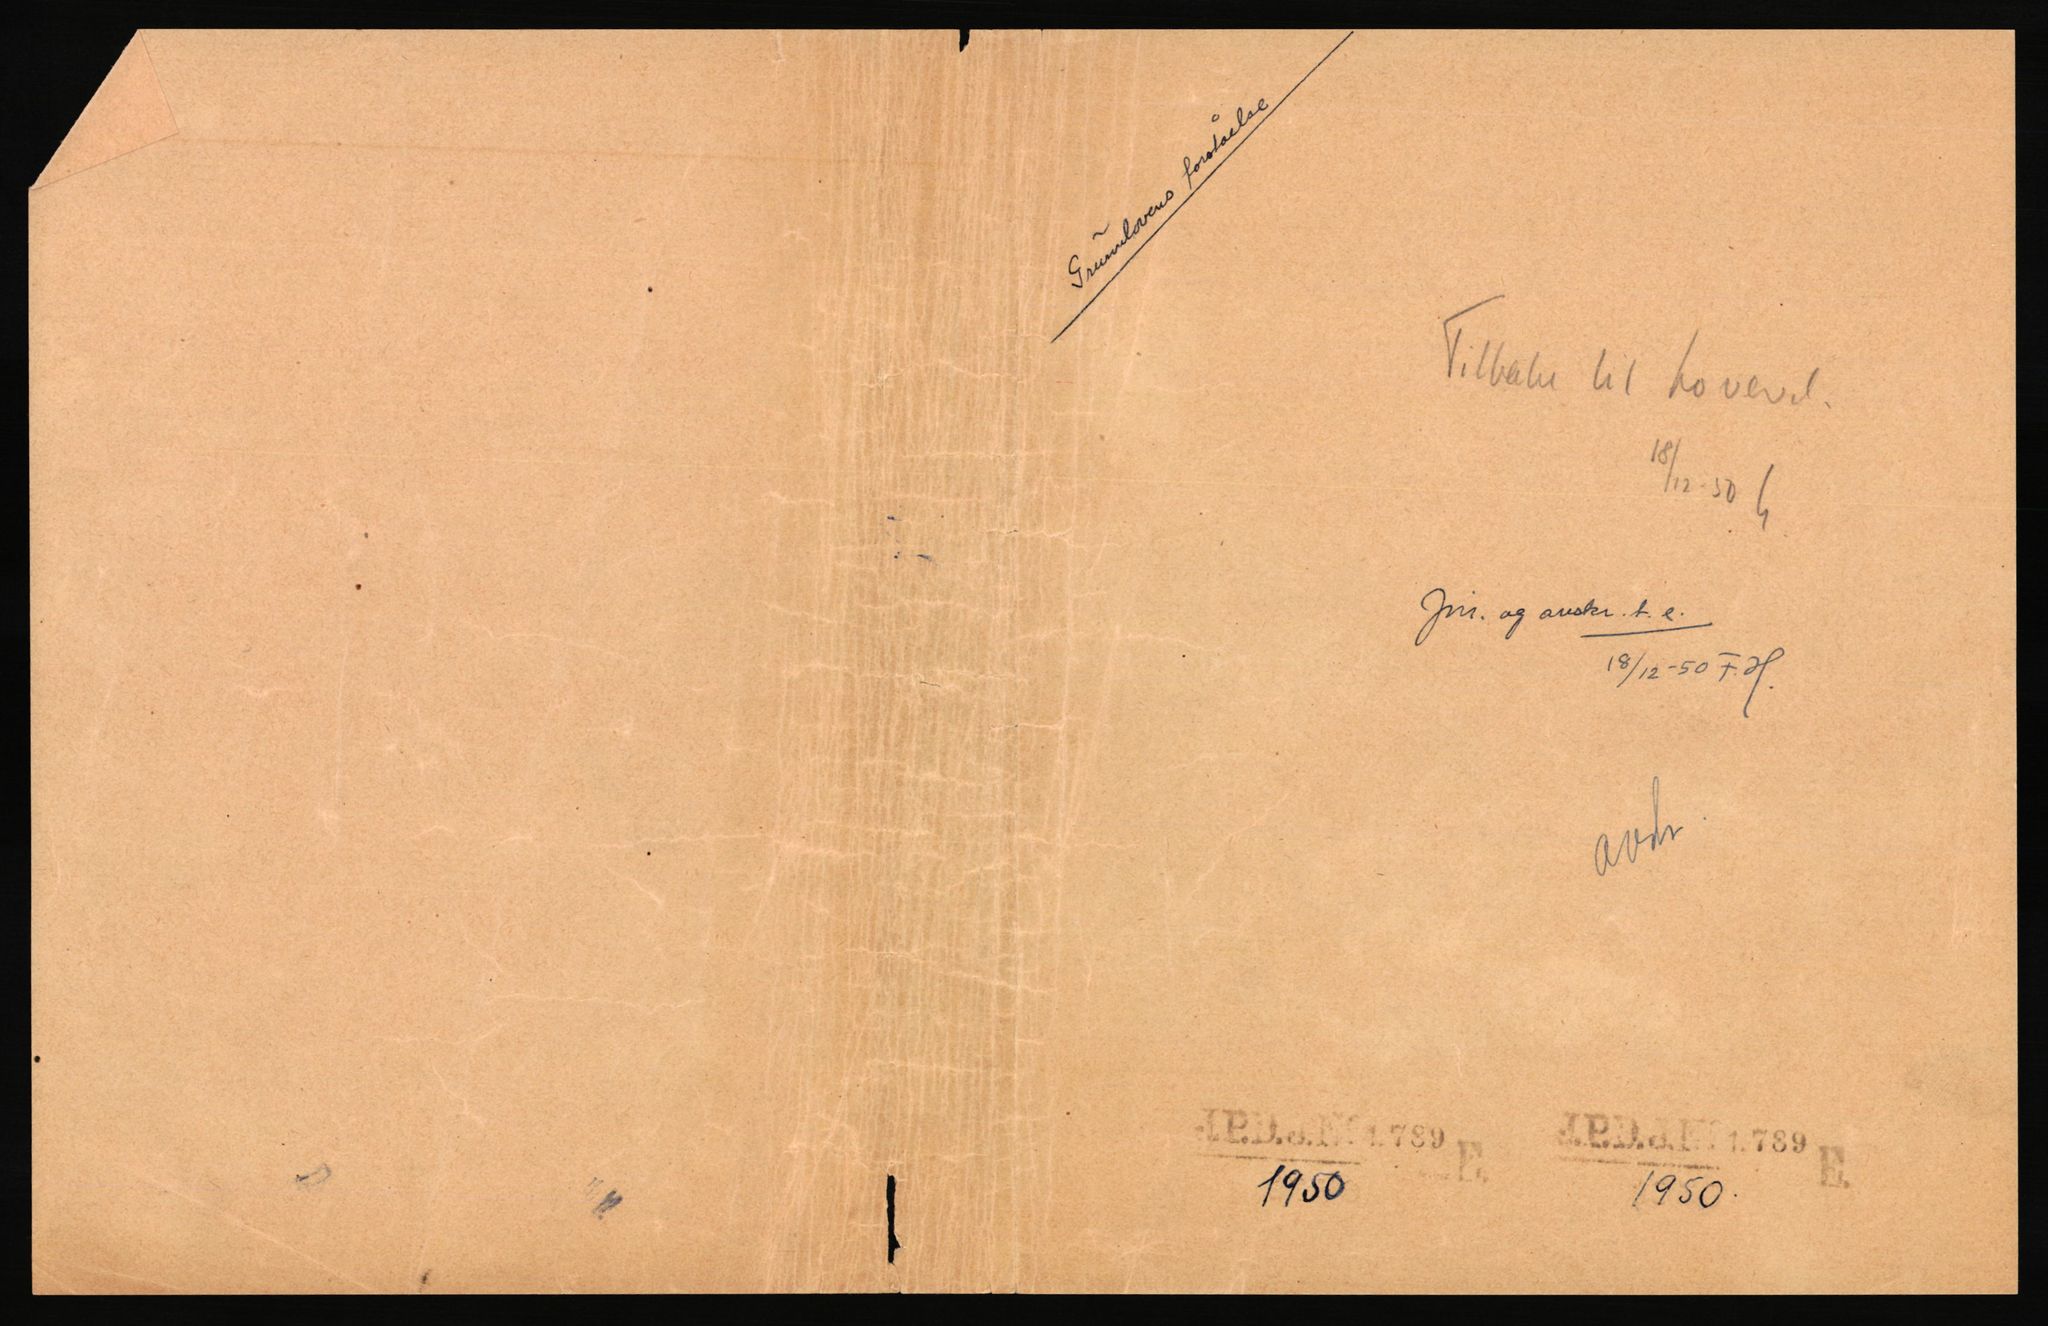 Grunnlovens forståelse
Tilbake til Lovavd.
18/12-50
Jnr. og avskr. t. e.
18/12-50 F.H.
J.P.D.J.Nº 1.789 E.
1950
J.P.D.J.Nº 1.789 E.
1950.